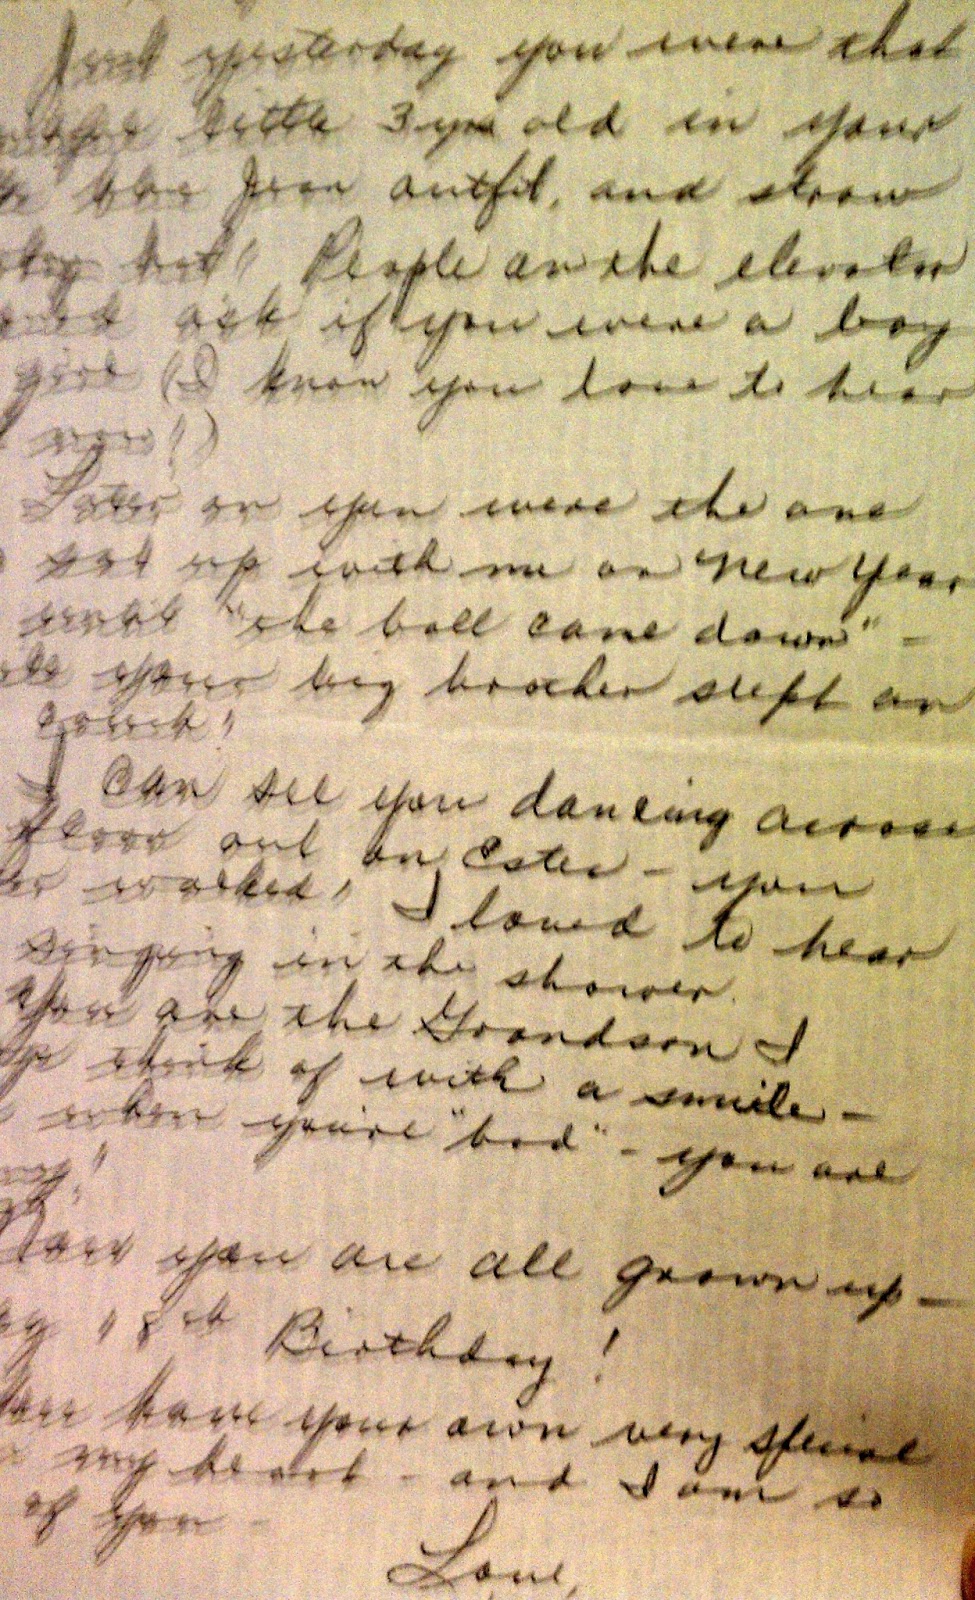 Just yesterday you were that
little 3 yr old in your
blue Jean outfit, and straw
hat! People on the elevator
ask if you were a boy
girl (I know you love to hear
now!)
Later on you were the one
sat up with me on New Year
until "the ball came down" -
your big brother slept on
couch!
I can see you dancing across
floor out on Estes - you
walked! I loved to hear
singing in the shower.
You are the Grandson I
think of with a smile -
when you're "bad" - you are
Now you are all grown up -
18th Birthday!
have your own very special
my heart - and I am so
of you -
Love,